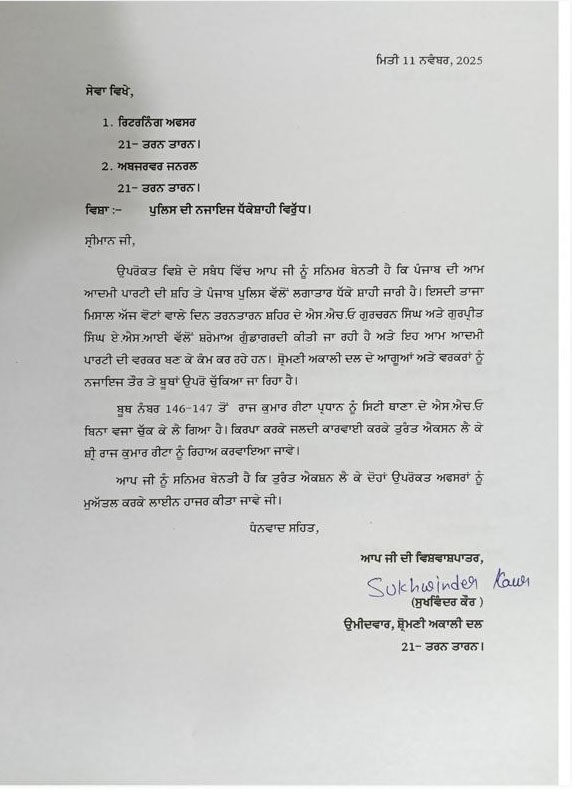 ਮਿਤੀ 11 ਨਵੰਬਰ, 2025
ਸੇਵਾ ਵਿਖੇ,
1. ਰਿਟਰਨਿੰਗ ਅਫਸਰ
21- ਤਰਨ ਤਾਰਨ।
2. ਅਬਜਰਵਰ ਜਨਰਲ
21- ਤਰਨ ਤਾਰਨ।
ਵਿਸ਼ਾ :- ਪੁਲਿਸ ਦੀ ਨਜਾਇਜ ਧੱਕੇਸ਼ਾਹੀ ਵਿਰੁੱਧ।
ਸ੍ਰੀਮਾਨ ਜੀ,
ਉਪਰੋਕਤ ਵਿਸ਼ੇ ਦੇ ਸਬੰਧ ਵਿੱਚ ਆਪ ਜੀ ਨੂੰ ਸਨਿਮਰ ਬੇਨਤੀ ਹੈ ਕਿ ਪੰਜਾਬ ਦੀ ਆਮ
ਆਦਮੀ ਪਾਰਟੀ ਦੀ ਸ਼ਹਿ ਤੇ ਪੰਜਾਬ ਪੁਲਿਸ ਵੱਲੋਂ ਲਗਾਤਾਰ ਧੱਕੇ ਸ਼ਾਹੀ ਜਾਰੀ ਹੈ। ਇਸਦੀ ਤਾਜਾ
ਮਿਸਾਲ ਅੱਜ ਵੋਟਾਂ ਵਾਲੇ ਦਿਨ ਤਰਨਤਾਰਨ ਸ਼ਹਿਰ ਦੇ ਐਸ.ਐਚ.ਓ ਗੁਰਚਰਨ ਸਿੰਘ ਅਤੇ ਗੁਰਪ੍ਰੀਤ
ਸਿੰਘ ਏ.ਐਸ.ਆਈ ਵੱਲੋਂ ਸ਼ਰੇਆਮ ਗੁੰਡਾਗਰਦੀ ਕੀਤੀ ਜਾ ਰਹੀ ਹੈ ਅਤੇ ਇਹ ਆਮ ਆਦਮੀ
ਪਾਰਟੀ ਦੀ ਵਰਕਰ ਬਣ ਕੇ ਕੰਮ ਕਰ ਰਹੇ ਹਨ। ਸ਼੍ਰੋਮਣੀ ਅਕਾਲੀ ਦਲ ਦੇ ਆਗੂਆਂ ਅਤੇ ਵਰਕਰਾਂ ਨੂੰ
ਨਜਾਇਜ ਤੌਰ ਤੇ ਬੂਥਾਂ ਉਪਰੋਂ ਚੁੱਕਿਆ ਜਾ ਰਿਹਾ ਹੈ।
ਬੂਥ ਨੰਬਰ 146-147 ਤੋਂ ਰਾਜ ਕੁਮਾਰ ਰੀਟਾ ਪ੍ਰਧਾਨ ਨੂੰ ਸਿਟੀ ਥਾਣਾ ਦੇ ਐਸ.ਐਚ.ਓ
ਬਿਨਾ ਵਜਾ ਚੁੱਕ ਕੇ ਲੈ ਗਿਆ ਹੈ। ਕਿਰਪਾ ਕਰਕੇ ਜਲਦੀ ਕਾਰਵਾਈ ਕਰਕੇ ਤੁਰੰਤ ਐਕਸਨ ਲੈ ਕੇ
ਸ਼੍ਰੀ ਰਾਜ ਕੁਮਾਰ ਰੀਟਾ ਨੂੰ ਰਿਹਾਅ ਕਰਵਾਇਆ ਜਾਵੇ।
ਆਪ ਜੀ ਨੂੰ ਸਨਿਮਰ ਬੇਨਤੀ ਹੈ ਕਿ ਤੁਰੰਤ ਐਕਸ਼ਨ ਲੈ ਕੇ ਦੋਹਾਂ ਉਪਰੋਕਤ ਅਫਸਰਾਂ ਨੂੰ
ਮੁਅੱਤਲ ਕਰਕੇ ਲਾਈਨ ਹਾਜਰ ਕੀਤਾ ਜਾਵੇ ਜੀ।
ਧੰਨਵਾਦ ਸਹਿਤ,
ਆਪ ਜੀ ਦੀ ਵਿਸ਼ਵਾਸ਼ਪਾਤਰ,
Sukhwinder Kaur
(ਸੁਖਵਿੰਦਰ ਕੌਰ )
ਉਮੀਦਵਾਰ, ਸ਼੍ਰੋਮਣੀ ਅਕਾਲੀ ਦਲ
21- ਤਰਨ ਤਾਰਨ।